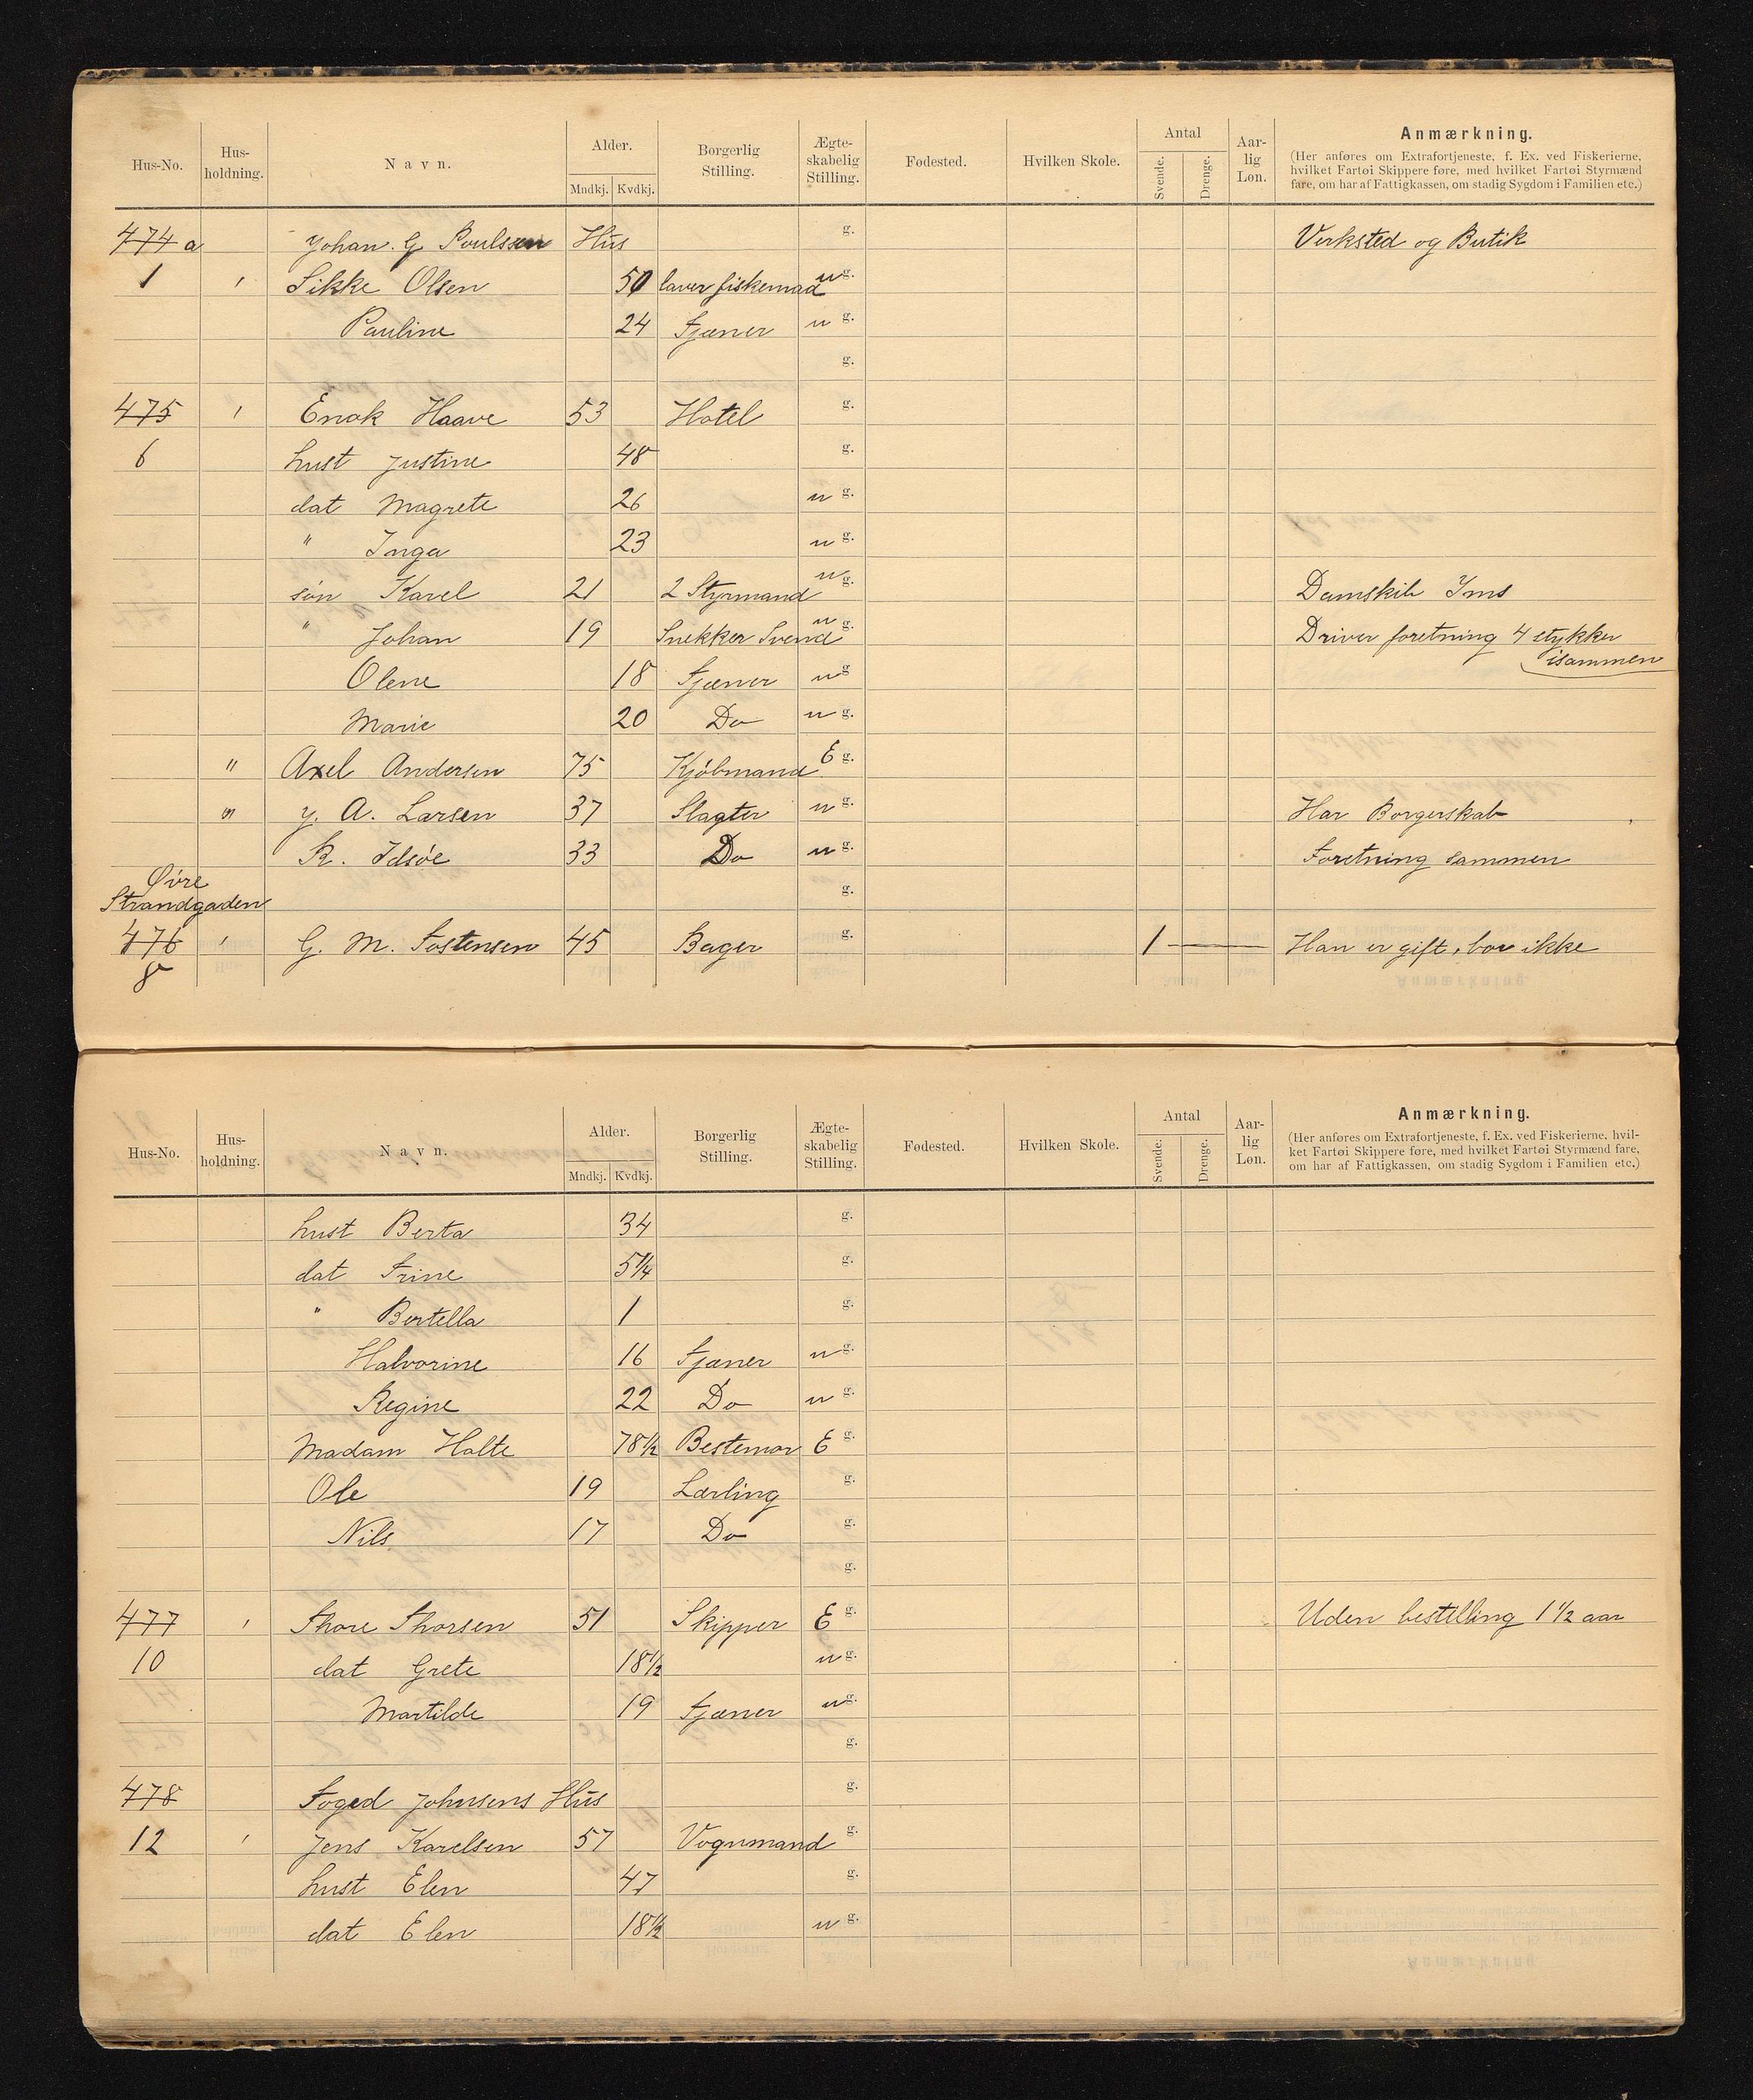 Hus-No. Hus-holdning. Navn. Alder. Mndkj. Kvdkj. Borgerlig Stilling. Ægte-skabelig Stilling. Fødested. Hvilken Skole. Antal Svende. Drenge. Aar-lig Løn. Anmærkning.
(Her anføres om Extrafortjeneste, f. Ex. ved Fiskerierne,
hvilket Fartøi Skippere føre, med hvilket Fartøi Styrmænd
fare, om har af Fattigkassen, om stadig Sygdom i Familien etc.)
474 a Johan. G Poulsen Hus g. Verksted og Butik
1 ' Sikke Olsen 50 laver fiskemad u g.
Pauline 24 Tjæner u g.
g.
475 ' Enok Haave 53 Hotel g.
6 hust Justine 48 g.
dat Magrete 26 u g.
" Inga 23 u g.
søn Karel 21 2 Styrmand u g. Damskib Yms
" Johan 19 Snekker Svend u g. Driver foretning 4 stykker
isammen
Olene 18 Tjæner u g.
Marie 20 Do u g.
" Axel Andersen 75 Kjøbmand E g.
"' y. A. Larsen 37 Slagter u g. Har Borgerskab
R. Idsøe 33 Do u g. Foretning sammen
Øvre
Strandgaden g.
476 ' G. M. Tostensen 45 Bager g. 1 — Han er gift, bor ikke
8
Hus-No. Hus-holdning. Navn. Alder. Mndkj. Kvdkj. Borgerlig Stilling. Ægte-skabelig Stilling. Fødested. Hvilken Skole. Antal Svende. Drenge. Aar-lig Løn. Anmærkning.
(Her anføres om Extrafortjeneste, f. Ex. ved Fiskerierne, hvil-
ket Fartøi Skippere føre, med hvilket Fartøi Styrmænd fare,
om har af Fattigkassen, om stadig Sygdom i Familien etc.)
hust Berta 34 g.
dat Trine 5 1/4 g.
" Bertella 1 g.
Halvorine 16 Tjæner u g.
Regine 22 Do u g.
Madam Holte 78 1/2 Bestemor E g.
Ole 19 Lærling g.
Nils 17 Do g.
g.
477 ' Thore Thorsen 51 Skipper E g. Uden bestilling 1 1/2 aar
10 dat Grete 18 1/2 u g.
Martilde 19 Tjæner u g.
g.
478 Foged Johnsens Hus g.
12 ' Jens Karelsen 57 Vognmand g.
hust Elen 47 g.
dat Elen 18 1/2 u g.